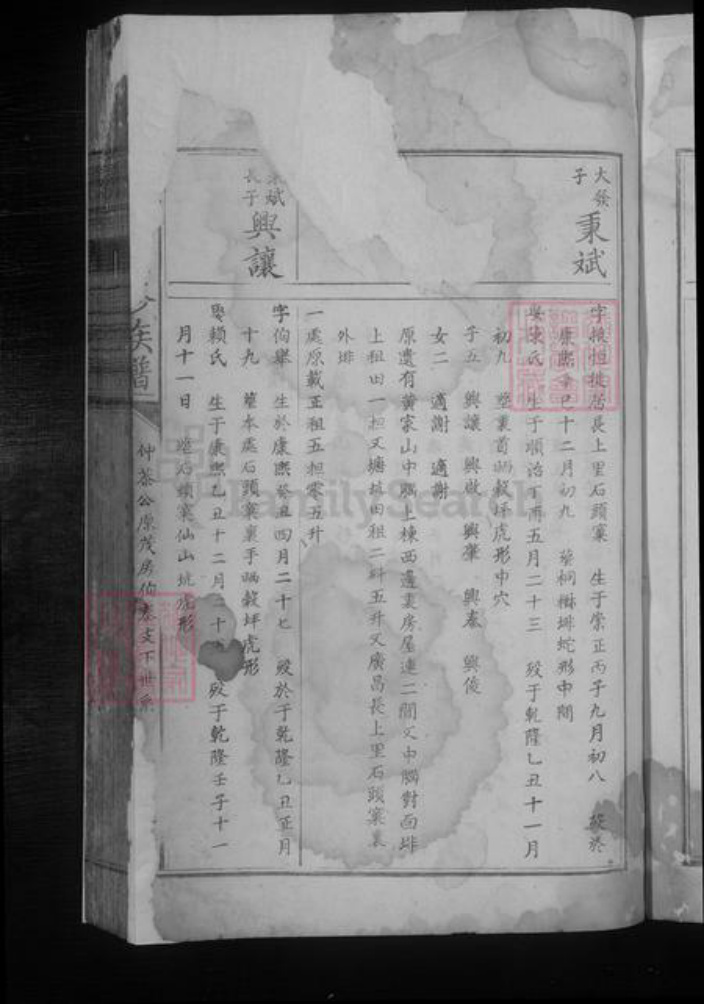 大發
子
秉斌
字 徙居長上里石頭寨 生于崇正丙子九月初八 歿於
康熙辛巳十二月初九 葬桐 排蛇形中間
娶陳氏 生于順治丁酉五月二十三 歿于乾隆乙丑十一月
初九 墬裏首 穀坪虎形中穴
子五 興讓 興啟 興肇 興泰 興俊
女二 適謝 適謝
原遺有黃家山中腦上棟西邊裏房屋連二間又中腦對面排
上租田一担又塘坑田租二斗五升又廣昌長上里石頭寨裏
外排
一處原載正租五担零五升
斌
長子
興讓
字伯舉 生於康熙癸丑四月二十七 歿於于乾隆乙丑正月
十九 葬本處石頭寨裏手 穀坪虎形
娶賴氏 生于康熙乙丑十二月二十 歿于乾隆壬子十一
月十一日 墬石頭寨仙山坑虎形
族譜
仲茶公原茂房伯泰支下世系
FamilySearch